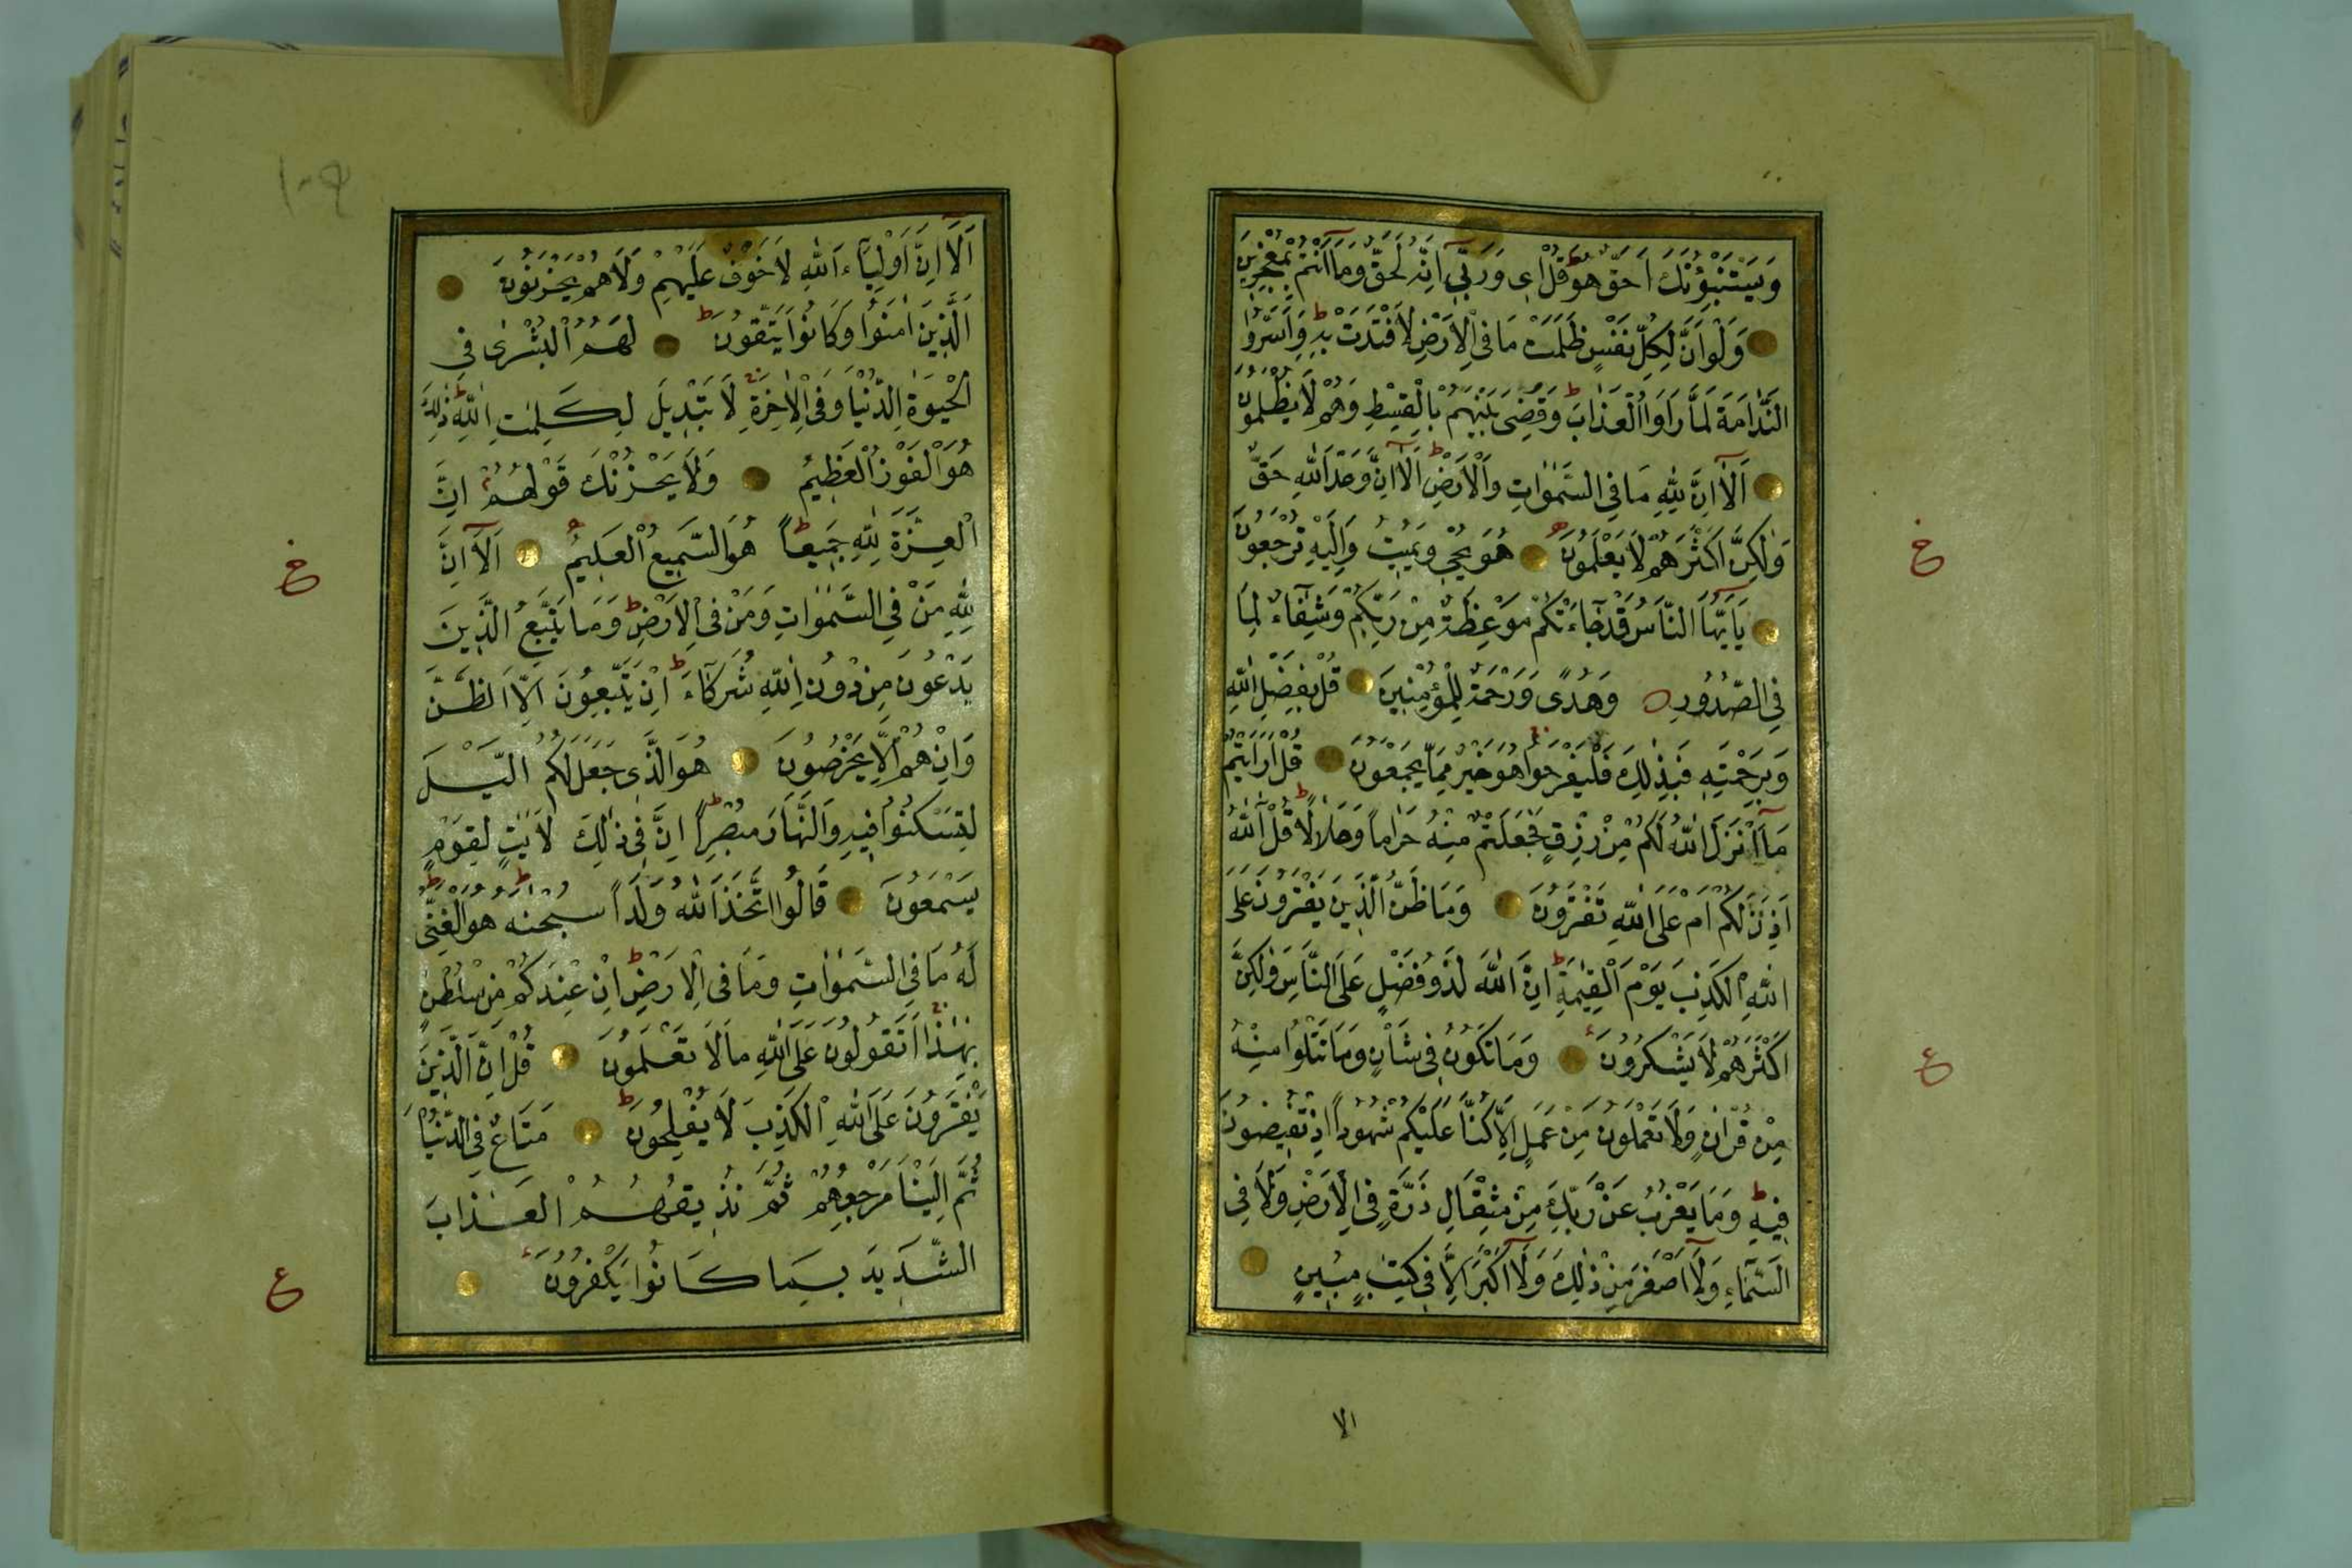 وَيَسْتَنْبِؤُنَكَ اَحَقٌّ هُوَ قُلْ اِى وَرَبِّى اِنَّهُ لَحَقٌّ وَمَآ اَنْتُمْ بِمُعْجِزِينَ
وَلَوْ اَنَّ لِكُلِّ نَفْسٍ ظَلَمَتْ مَا فِى الْاَرْضِ لَافْتَدَتْ بِهِ وَاَسَرُّوا
النَّدَامَةَ لَمَّا رَاَوُا الْعَذَابَ وَقُضِىَ بَيْنَهُمْ بِالْقِسْطِ وَهُمْ لَا يُظْلَمُونَ
اَلَآ اِنَّ لِلّٰهِ مَا فِى السَّمٰوَاتِ وَالْاَرْضِ اَلَآ اِنَّ وَعْدَ اللّٰهِ حَقٌّ
وَلٰكِنَّ اَكْثَرَهُمْ لَا يَعْلَمُونَ هُوَ يُحْيِ وَيُمِيتُ وَاِلَيْهِ تُرْجَعُونَ
يَآ اَيُّهَا النَّاسُ قَدْ جَآءَتْكُمْ مَوْعِظَةٌ مِنْ رَبِّكُمْ وَشِفَآءٌ لِمَا
فِى الصُّدُورِ وَهُدًى وَرَحْمَةٌ لِلْمُؤْمِنِينَ قُلْ بِفَضْلِ اللّٰهِ
وَبِرَحْمَتِهِ فَبِذٰلِكَ فَلْيَفْرَحُوا هُوَ خَيْرٌ مِمَّا يَجْمَعُونَ قُلْ اَرَاَيْتُمْ
مَآ اَنْزَلَ اللّٰهُ لَكُمْ مِنْ رِزْقٍ فَجَعَلْتُمْ مِنْهُ حَرَاماً وَحَلَالاً قُلْ آللّٰهُ
اَذِنَ لَكُمْ اَمْ عَلَى اللّٰهِ تَفْتَرُونَ وَمَا ظَنُّ الَّذِينَ يَفْتَرُونَ عَلَى
اللّٰهِ الْكَذِبَ يَوْمَ الْقِيٰمَةِ اِنَّ اللّٰهَ لَذُو فَضْلٍ عَلَى النَّاسِ وَلٰكِنَّ
اَكْثَرَهُمْ لَا يَشْكُرُونَ وَمَا تَكُونُ فِى شَاْنٍ وَمَا تَتْلُوا مِنْهُ
مِنْ قُرْاٰنٍ وَلَا تَعْمَلُونَ مِنْ عَمَلٍ اِلَّا كُنَّا عَلَيْكُمْ شُهُوداً اِذْ تُفِيضُونَ
فِيهِ وَمَا يَعْزُبُ عَنْ رَبِّكَ مِنْ مِثْقَالِ ذَرَّةٍ فِى الْاَرْضِ وَلَا فِى
السَّمَآءِ وَلَآ اَصْغَرَ مِنْ ذٰلِكَ وَلَآ اَكْبَرَ اِلَّا فِى كِتٰبٍ مُبِينٍ
الا
اَلَآ اِنَّ اَوْلِيَآءَ اللّٰهِ لَا خَوْفٌ عَلَيْهِمْ وَلَا هُمْ يَحْزَنُونَ
اَلَّذِينَ اٰمَنُوا وَكَانُوا يَتَّقُونَ لَهُمُ الْبُشْرٰى فِى
الْحَيٰوةِ الدُّنْيَا وَفِى الْاٰخِرَةِ لَا تَبْدِيلَ لِكَلِمٰتِ اللّٰهِ ذٰلِكَ
هُوَ الْفَوْزُ الْعَظِيمُ وَلَا يَحْزُنْكَ قَوْلُهُمْ اِنَّ
الْعِزَّةَ لِلّٰهِ جَمِيعاً هُوَ السَّمِيعُ الْعَلِيمُ اَلَآ اِنَّ
لِلّٰهِ مَنْ فِى السَّمٰوَاتِ وَمَنْ فِى الْاَرْضِ وَمَا يَتَّبِعُ الَّذِينَ
يَدْعُونَ مِنْ دُونِ اللّٰهِ شُرَكَآءَ اِنْ يَتَّبِعُونَ اِلَّا الظَّنَّ
وَاِنْ هُمْ اِلَّا يَخْرُصُونَ هُوَ الَّذِى جَعَلَ لَكُمُ الَّيْلَ
لِتَسْكُنُوا فِيهِ وَالنَّهَارَ مُبْصِراً اِنَّ فِى ذٰلِكَ لَاٰيٰتٍ لِقَوْمٍ
يَسْمَعُونَ قَالُوا اتَّخَذَ اللّٰهُ وَلَداً سُبْحٰنَهُ هُوَ الْغَنِىُّ
لَهُ مَا فِى السَّمٰوَاتِ وَمَا فِى الْاَرْضِ اِنْ عِنْدَكُمْ مِنْ سُلْطٰنٍ
بِهٰذَا اَتَقُولُونَ عَلَى اللّٰهِ مَا لَا تَعْلَمُونَ قُلْ اِنَّ الَّذِينَ
يَفْتَرُونَ عَلَى اللّٰهِ الْكَذِبَ لَا يُفْلِحُونَ مَتَاعٌ فِى الدُّنْيَا
ثُمَّ اِلَيْنَا مَرْجِعُهُمْ ثُمَّ نُذِيقُهُمُ الْعَذَابَ
الشَّدِيدَ بِمَا كَانُوا يَكْفُرُونَ